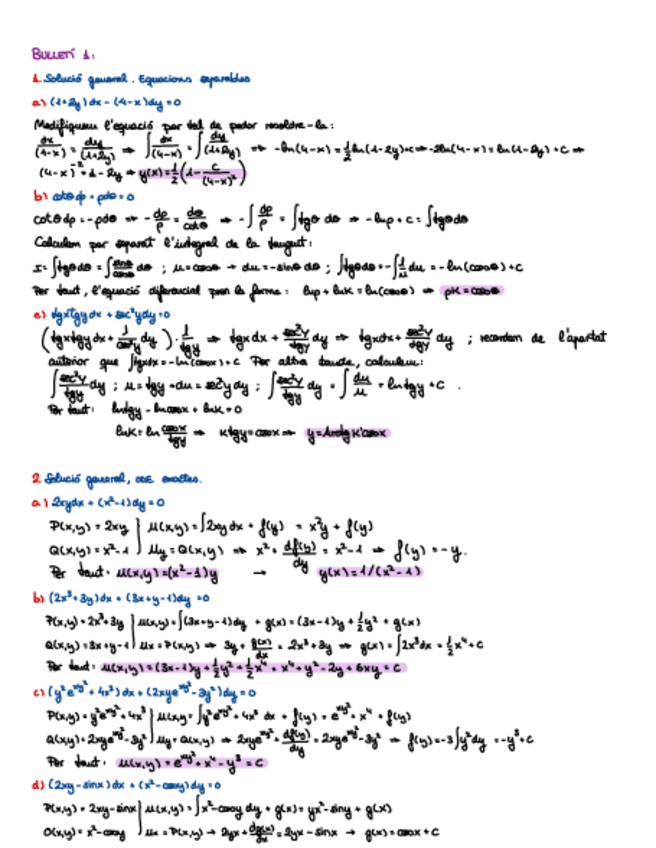 BULLETÍ 1:
1. Solució general. Equacions separables
a) (1+2y)dx - (4-x)dy = 0
Modifiquem l'equació per tal de poder resoldre-la:
dx/(4-x) = dy/(1+2y) ⇒ ∫dx/(4-x) = ∫dy/(1+2y) ⇒ -ln(4-x) = 1/2 ln(1-2y)+c ⇒ -2ln(4-x) = ln(1-2y)+C ⇒
(4-x)⁻² = 1-2y ⇒ y(x) = 1/2(1 - C/(4-x)²)
b) cotθdρ + ρdθ = 0
cotθdρ = -ρdθ ⇒ -dρ/ρ = dθ/cotθ ⇒ -∫dρ/ρ = ∫tgθ dθ ⇒ -lnρ + c = ∫tgθdθ
Calculem per separat l'integral de la tangent:
I = ∫tgθdθ = ∫sinθ/cosθ dθ ; u = cosθ → du = -sinθ dθ ; ∫tgθdθ = -∫1/u du = -ln(cosθ)+C
Per tant, l'equació diferencial pren la forma: lnρ + lnK = ln(cosθ) ⇒ ρK = cosθ
c) tgxtgydx + sec²ydy = 0
(tgxtgydx + 1/cos²y dy) · 1/tgy ⇒ tgxdx + sec²y/tgy dy ⇒ tgxdx + sec²y/tgy dy ; recordem de l'apartat
anterior que ∫tgxdx = -ln(cosx)+C Per altra banda, calculem:
∫sec²y/tgy dy ; u = tgy → du = sec²y dy ; ∫sec²y/tgy dy = ∫du/u = lntgy + C .
Per tant: lntgy - lncosx + lnK = 0
lnK = ln cosx/tgy ⇒ Ktgy = cosx ⇒ y = Arctg K'cosx
2. Solució general, ODE exactes.
a) 2xydx + (x²-1)dy = 0
P(x,y) = 2xy } u(x,y) = ∫2xy dx + f(y) = x²y + f(y)
Q(x,y) = x²-1 } uy = Q(x,y) ⇒ x² + df(y)/dy = x²-1 ⇒ f(y) = -y.
Per tant: u(x,y) = (x²-1)y → y(x) = 1/(x²-1)
b) (2x³+3y)dx + (3x+y-1)dy = 0
P(x,y) = 2x³+3y } u(x,y) = ∫(3x+y-1)dy + g(x) = (3x-1)y + 1/2 y² + g(x)
Q(x,y) = 3x+y-1 } ux = P(x,y) ⇒ 3y + g(x)/dx = 2x³+3y ⇒ g(x) = ∫2x³dx = 1/2 x⁴+C
Per tant: u(x,y) = (3x-1)y + 1/2 y² + 1/2 x⁴ = x⁴ + y² - 2y + 6xy = C
c) (y²e^xy² + 4x³)dx + (2xye^xy² - 3y²)dy = 0
P(x,y) = y²e^xy² + 4x³ } u(x,y) = ∫y²e^xy² + 4x³ dx + f(y) = e^xy² + x⁴ + f(y)
Q(x,y) = 2xye^xy² - 3y² } uy = Q(x,y) ⇒ 2xye^xy² + df(y)/dy = 2xye^xy² - 3y² ⇒ f(y) = -3∫y²dy = -y³+C
Per tant: u(x,y) = e^xy² + x⁴ - y³ = C
d) (2xy-sinx)dx + (x²-cosy)dy = 0
P(x,y) = 2xy-sinx } u(x,y) = ∫x²-cosy dy + g(x) = yx² - siny + g(x)
Q(x,y) = x²-cosy } ux = P(x,y) → 2yx + dg(x)/dx = 2yx - sinx → g(x) = cosx + C